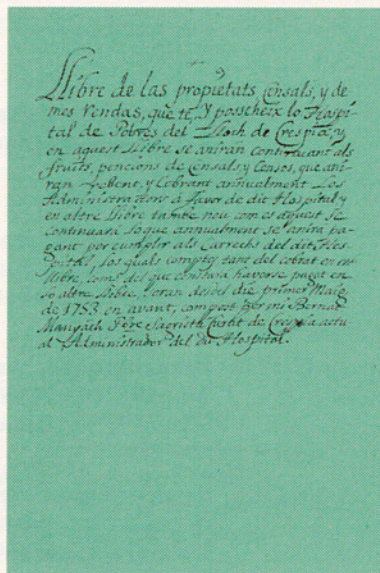 Llibre de las propietats Censals, y de
mes Rendas, que tè, y posseheix lo Hospi-
tal de Pobres del Lloch de Crespià, y
en aquest Llibre se aniran continuant als
fruits, pencions de Censals, y Censos, que ani-
ran rebent, y Cobrant annualment Los
Administradors à favor de dit Hospital, y
en altre llibre tambe nou com es aquest se
Continuarà lo que annualment se anirà pa-
gant per cumplir als Carrechs del dit Hos-
pital, los quals comptes tant del cobrat en est
llibre, com del que constarà haverse pagat en
lo altre llibre, seran desde die primer Maig
de 1753 en avant, compost per mi Bernat
Manyach Pbre Sacristà Curat de Crespià actu
al Administrador del dit Hospital.